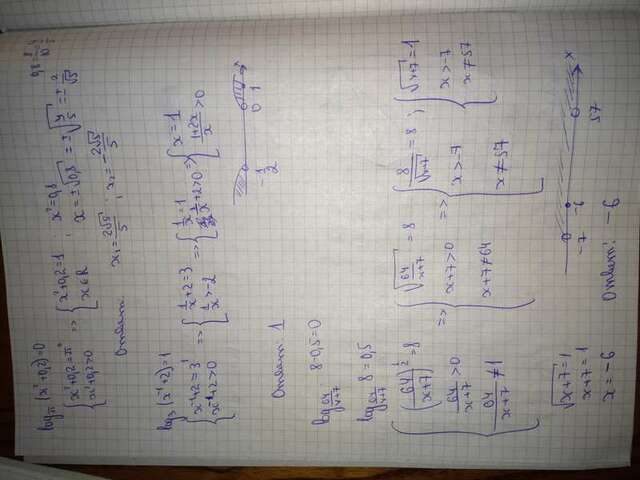 log_π (x²+0,2)=0
{ x²+0,2=π⁰
x²+0,2>0 => { x²+0,2=1
x∈R ; x²=0,8
x=±√0,8 = ±√(4/5) = ± 2/√5
x₁= 2√5/5 ; x₂= - 2√5/5
Ответ:
log₃ (x⁻¹+2)=1
{ x⁻¹+2=3¹
x⁻¹+2>0 => { 1/x+2=3
1/x>-2 => { 1/x=1
1/x+2>0 => { x=1
(1+2x)/x>0
-1/2 0 1
Ответ: 1
log_(64/(x+7)) 8-0,5=0
log_(64/(x+7)) 8=0,5
{ (64/(x+7))^(1/2)=8
64/(x+7)>0
64/(x+7)≠1 => { √(64/(x+7))=8
x+7>0
x+7≠64 => { 8/√(x+7)=8 ;
x>-7
x≠57 { √(x+7)=1
x>-7
x≠57
√(x+7)=1
x+7=1
x=-6
-7 -6 57 x
Ответ: -6